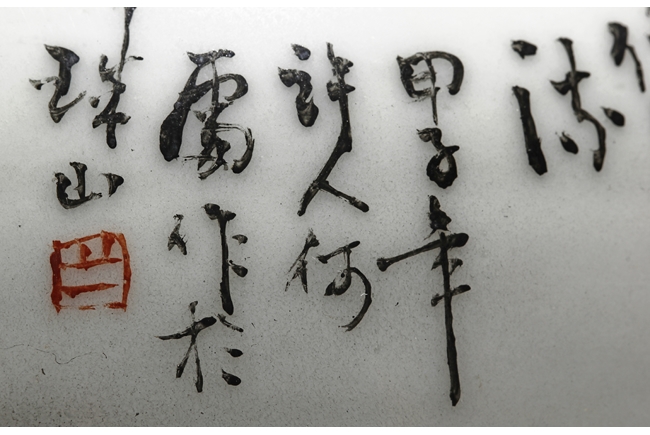 甲子年
許人何
處作於
珠山